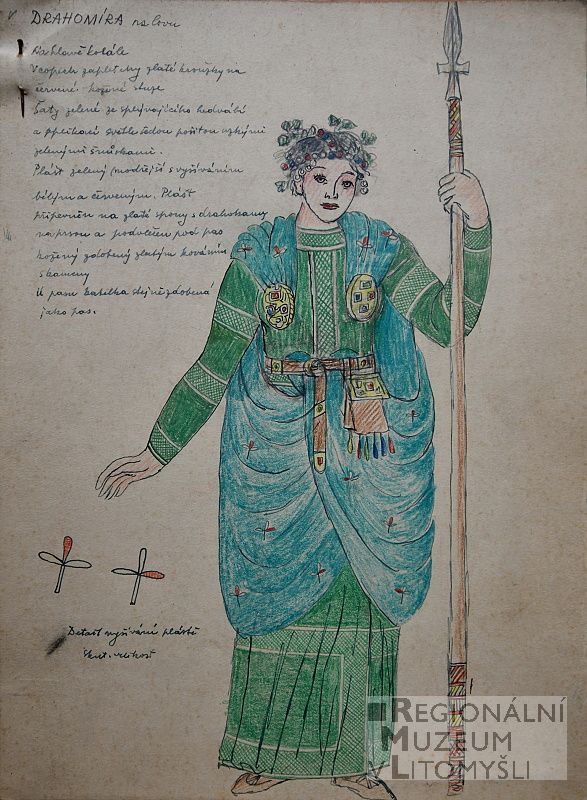 DRAHOMÍRA na lovu
Na hlavě kotále
V copech zapleteny zlaté kroužky na
červené koženě stuze
Šaty zelené ze splývajícího hedvábí
a aplikací světle šedou pošitou úzkými
zelenými šňůrkami.
Plášť zelený (modřejší s vyšíváním
bílým a červeným. Plášť
připevněn na zlaté spony s drahokamy
na prsou a podvlečen pod pas
kožený zdobený zlatým kováním
s kameny
U pasu kabelka stejně zdobená
jako pas.
Detail vyšívání pláště
Skut. velikost
REGIONÁLNÍ
MUZEUM
V LITOMYŠLI